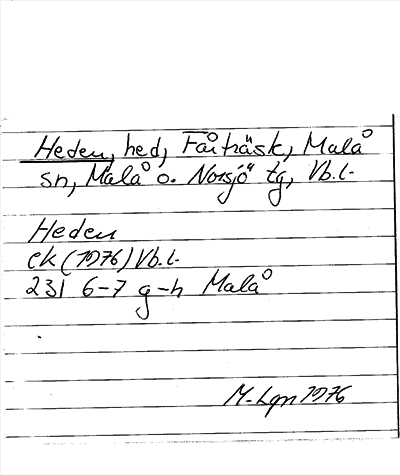 Heden, hed, Fårträsk, Malå
sn, Malå o. Norsjö tg, Vb.l.
Heden
ek (1976) Vb.l.
23I 6-7 g-h Malå
M-Lgn 1976